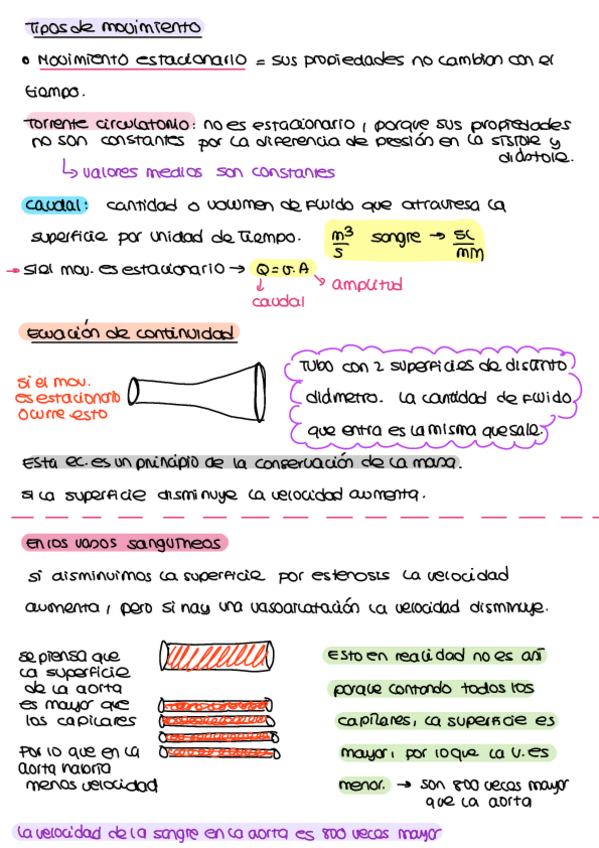 Tipos de movimiento
• Movimiento estacionario = sus propiedades no cambian con el
tiempo.
Torrente circulatorio: no es estacionario, porque sus propiedades
no son constantes por la diferencia de presión en la sístole y
diástole.
↳ valores medios son constantes
Caudal: cantidad o volumen de fluido que atraviesa la
superficie por unidad de tiempo. m³/s sangre → 5L/mm
→ si el mov. es estacionario → Q = v. A
amplitud
caudal
Ecuación de continuidad
si el mov.
es estacionario
ocurre esto
Tubo con 2 superficies de distinto
diámetro. La cantidad de fluido
que entra es la misma que sale.
Esta ec. es un principio de la conservación de la masa.
si la superficie disminuye la velocidad aumenta.
En los vasos sanguíneos
si disminuimos la superficie por estenosis la velocidad
aumenta, pero si hay una vasodilatación la velocidad disminuye.
se piensa que
la superficie
de la aorta
es mayor que
los capilares
por lo que en la
aorta habría
menos velocidad
Esto en realidad no es así
porque contando todos los
capilares, la superficie es
mayor, por lo que la v. es
menor. → son 800 veces mayor
que la aorta
La velocidad de la sangre en la aorta es 800 veces mayor